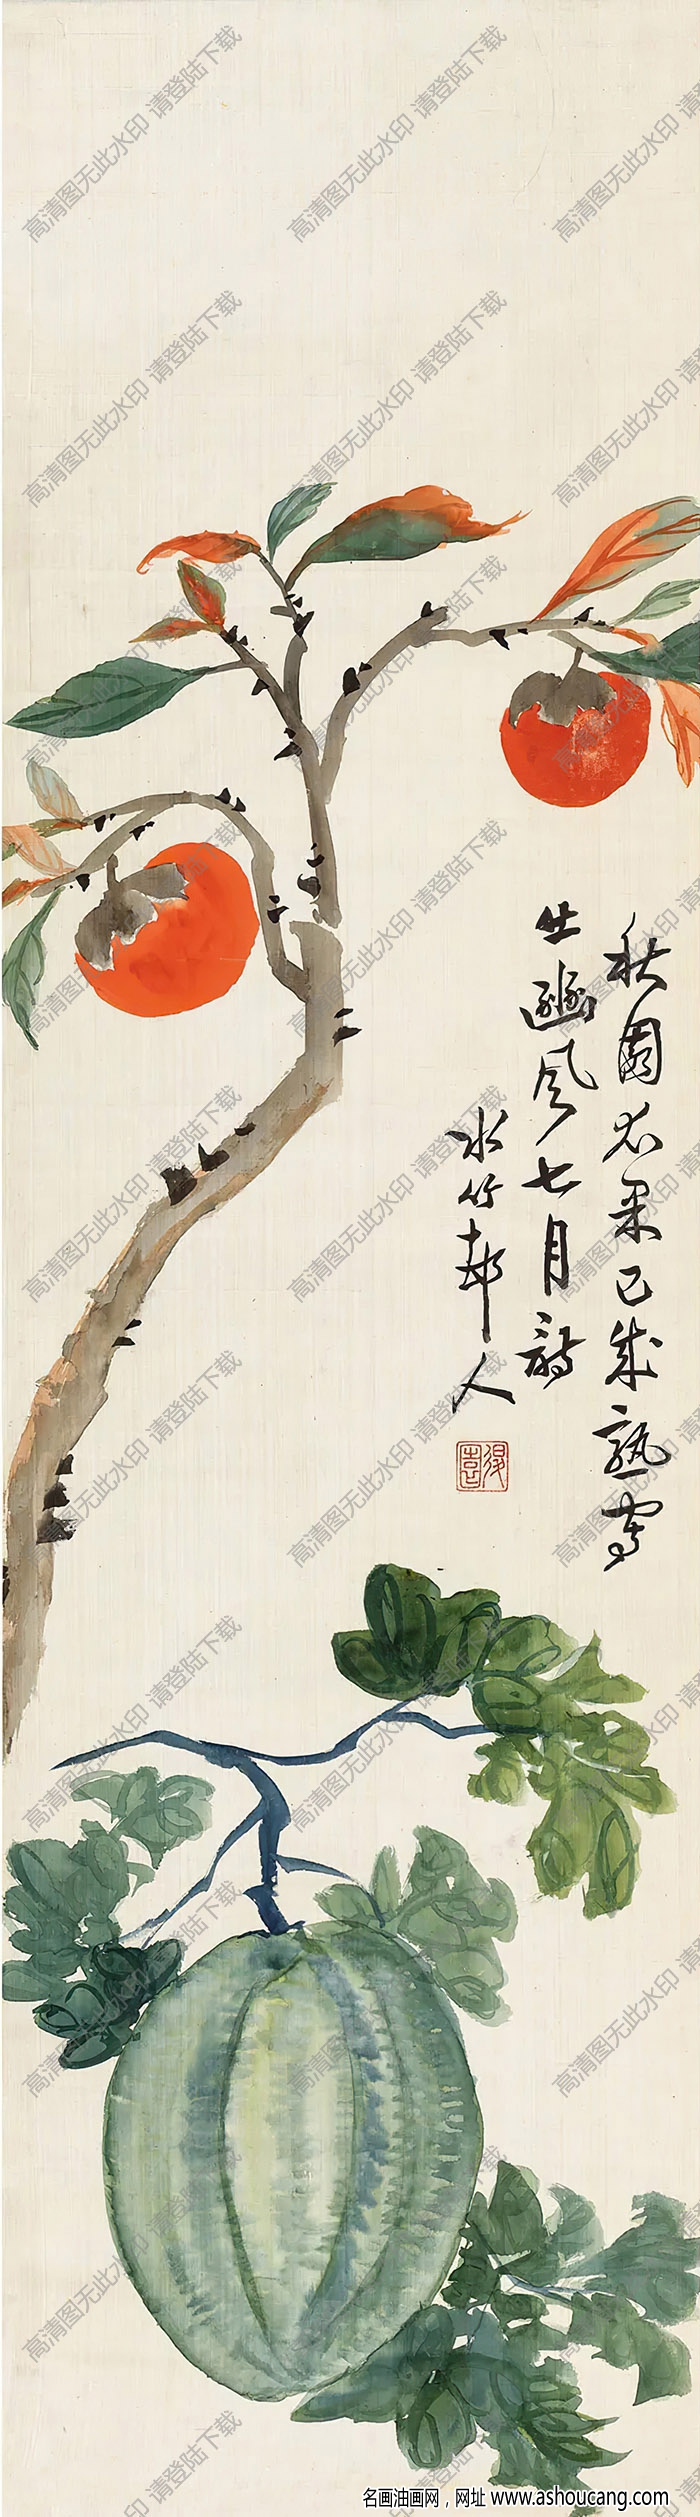 秋園瓜果已成熟寫
出豳风七月詩
水竹邨人
高清图无此水印 请登陆下载
名画油画网，网址 www.ashoucang.com